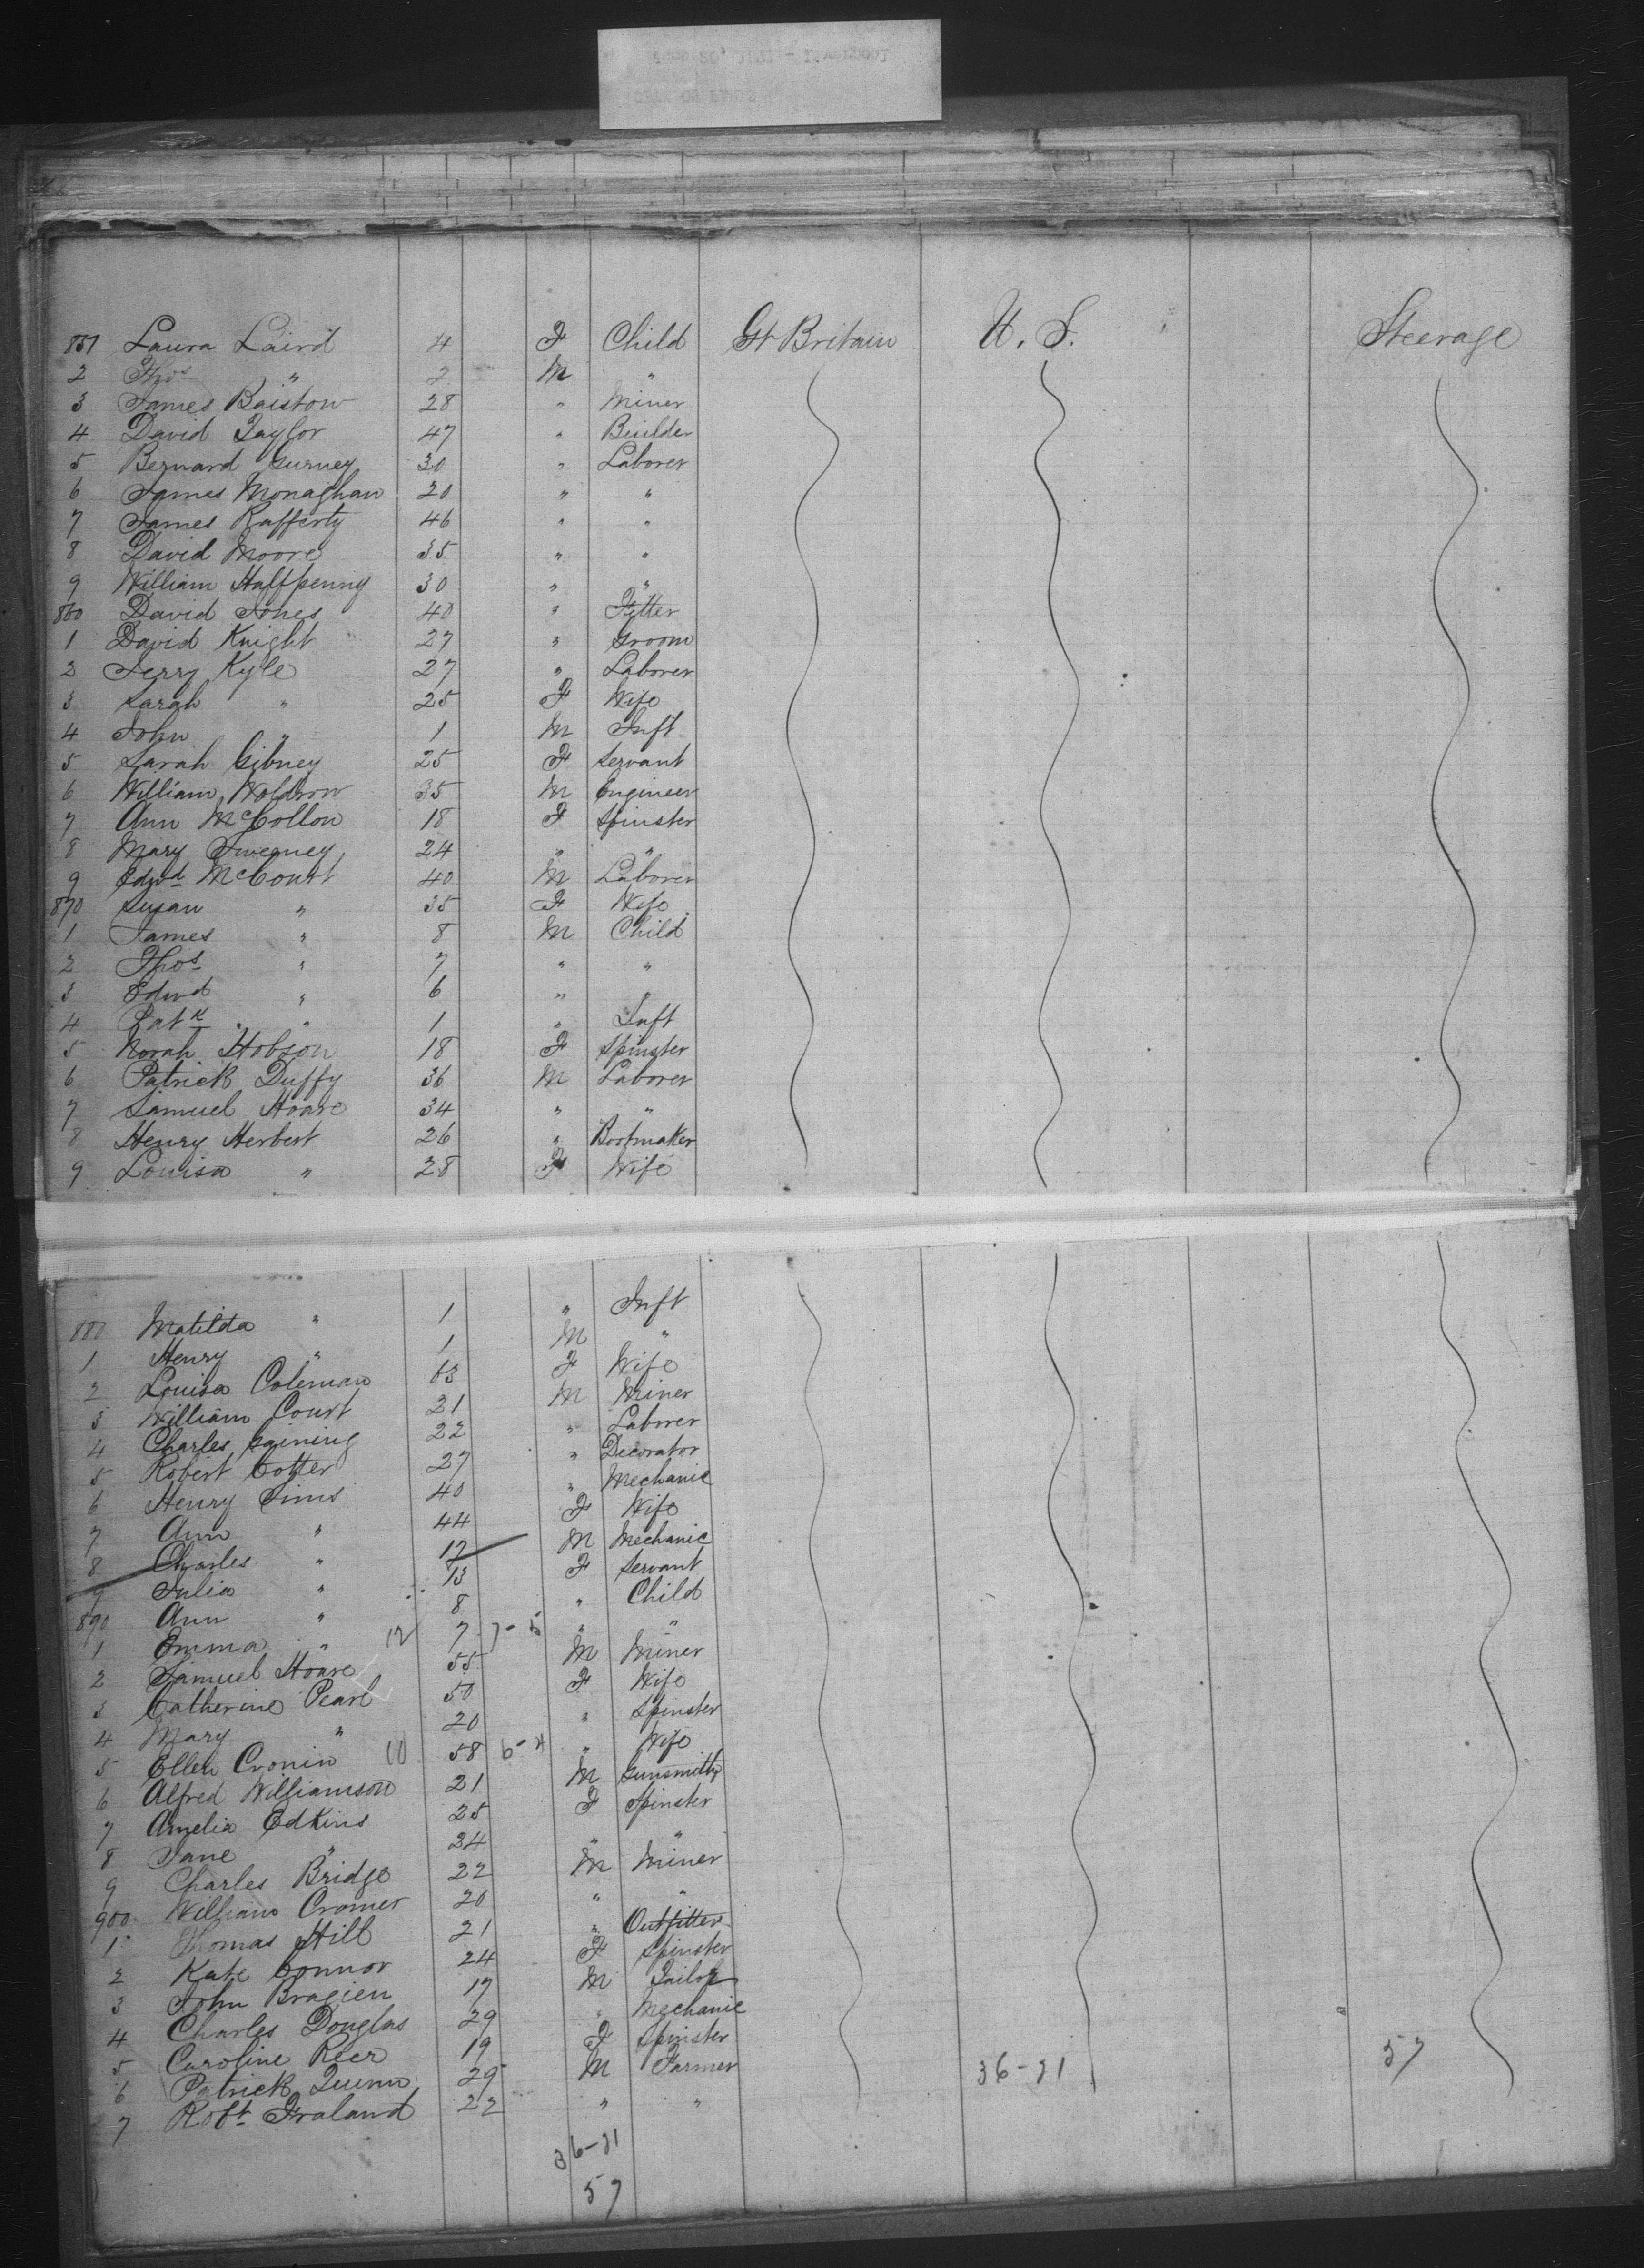 851 Laura Laird 4 F Child Gt Britain U. S. Steerage
2 Thos " 2 M "
3 James Baistow 28 " Miner
4 David Taylor 47 " Builder
5 Bernard Gurney 30 " Laborer
6 James Monaghan 20 " "
7 James Rafferty 46 " "
8 David Moore 35 " "
9 William Halfpenny 30 " "
860 David Jones 40 " Fitter
1 David Knight 27 " Groom
2 Jerry Kyle 27 " Laborer
3 Sarah " 25 F Wife
4 John " 1 M Inft
5 Sarah Gibney 25 F Servant
6 William Woldrow 35 M Engineer
7 Ann McCollon 18 F Spinster
8 Mary Sweeney 24 " "
9 Edwd McCourt 40 M Laborer
870 Susan " 35 F Wife
1 James " 8 M Child
2 Thos " 7 " "
3 Edwd " 6 " "
4 Patk " 1 " Inft
5 Norah Hobson 18 F Spinster
6 Patrick Duffy 36 M Laborer
7 Samuel Hoare 34 " "
8 Henry Herbert 26 " Bootmaker
9 Louisa " 28 F Wife
880 Matilda " 1 " Inft
1 Henry " 1 M "
2 Louisa Coleman 63 F Wife
3 William Court 21 M Miner
4 Charles 22 " Laborer
5 Robert Cotter 27 " Decorator
6 Henry Sims 40 " Mechanic
7 Ann " 44 F Wife
8 Charles " 17 M Mechanic
9 Julia " 13 F Servant
890 Ann " 8 " Child
1 Emma " 12 7 7-5 " "
2 Samuel Hoare 55 M Miner
3 Catherine Pearl 50 F Wife
4 Mary " 20 " Spinster
5 Ellen Cronin 10 58 6-4 " Wife
6 Alfred Williamson 21 M Gunsmith
7 Amelia Edkins 25 F Spinster
8 Jane " 24 " "
9 Charles Bridge 22 M Miner
900 William Cromer 20 " "
1 Thomas Hill 21 " Outfitter
2 Kate Connor 24 F Spinster
3 John Bragien 17 M Tailor
4 Charles Douglas 29 " Mechanic
5 Caroline Reer 19 F Spinster
6 Patrick Quinn 29 M Farmer 36-21 57
7 Robt Fraland 22 " "
36-21
57